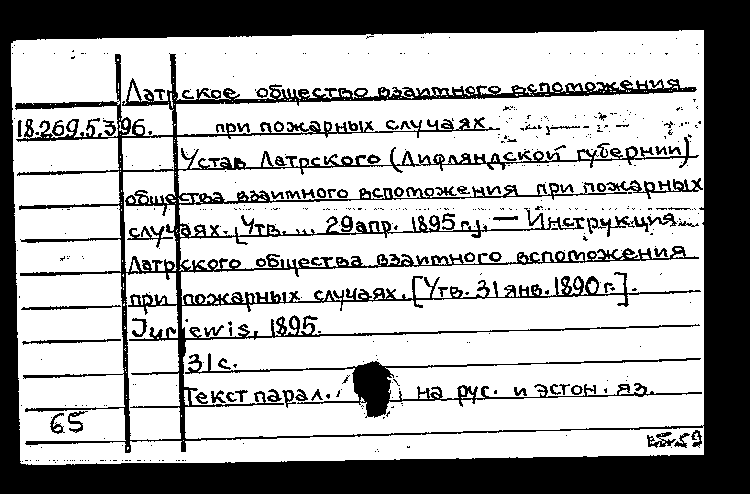 Латрское общество взаитного вспотожения
18.269.5.396. при пожарных случаях.
Устав Латрского (Лифляндской губернии)
общества взаитного вспотожения при пожарных
случаях. [Утв. ... 29 апр. 1895 г.]. — Инструкция
Латрского общества взаитного вспотожения
при пожарных случаях. [Утв. 31 янв. 1890 г.].
Jurjewis, 1895.
31 с.
Текст парал. на рус. и эстон. яз.
65